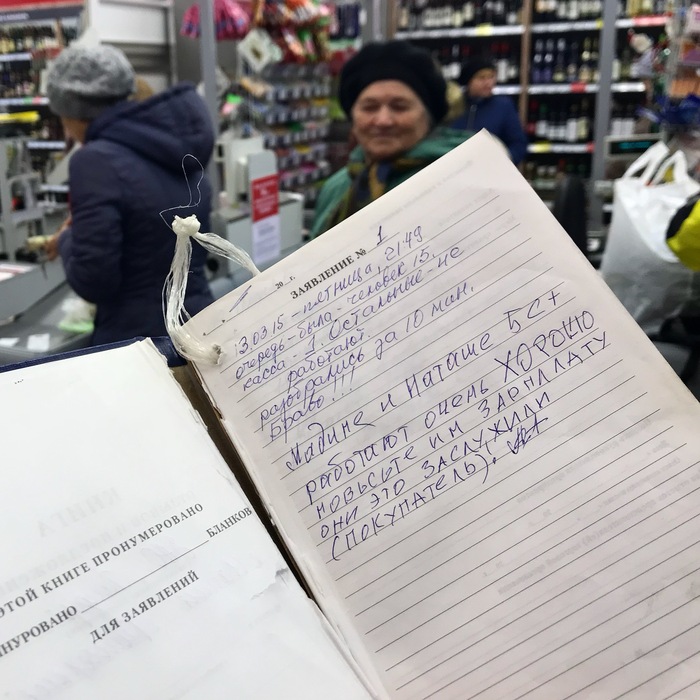 ЭТОЙ КНИГЕ ПРОНУМЕРОВАНО
БЛАНКОВ
НУРОВАНО
ДЛЯ ЗАЯВЛЕНИЙ
20 г.
ЗАЯВЛЕНИЕ № 1
13.03.15 - пятница, 21:49
очередь - была - человек 15.
касса - 1. Остальные - не
работают
разобрались за 10 мин.
Браво!!!
Мадине и Наташе 5с+
работают очень ХОРОШО
повысьте им ЗАРПЛАТУ
они это ЗАСЛУЖИЛИ
(ПОКУПАТЕЛЬ).